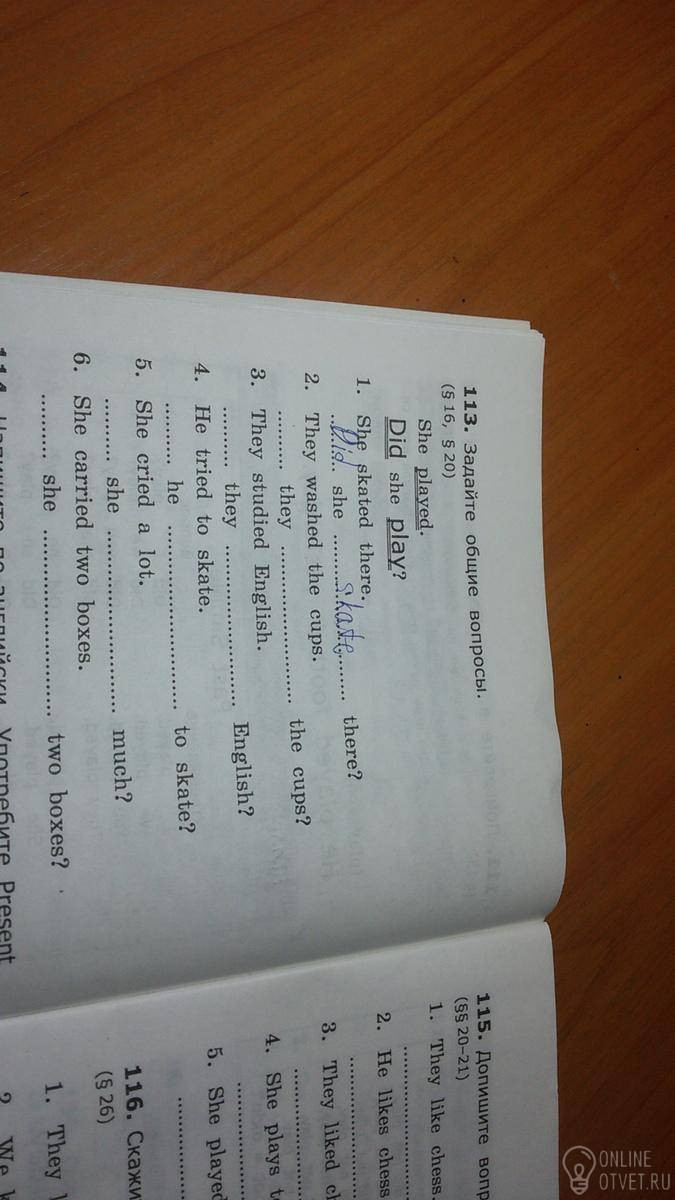 113. Задайте общие вопросы.
(§ 16, § 20)
She played.
Did she play?
1. She skated there.
..Did.. she ..........skate......... there?
2. They washed the cups.
.......... they .......................... the cups?
3. They studied English.
.......... they .......................... English?
4. He tried to skate.
.......... he .......................... to skate?
5. She cried a lot.
.......... she .......................... much?
6. She carried two boxes.
.......... she .......................... two boxes?
Употребите Present
115. Допишите
(§§ 20–21)
1. They like chess.
2. He likes chess
3. They liked
4. She plays
5. She played
116.
(§ 26)
1. They
2. We
ONLINE
OTVET.RU